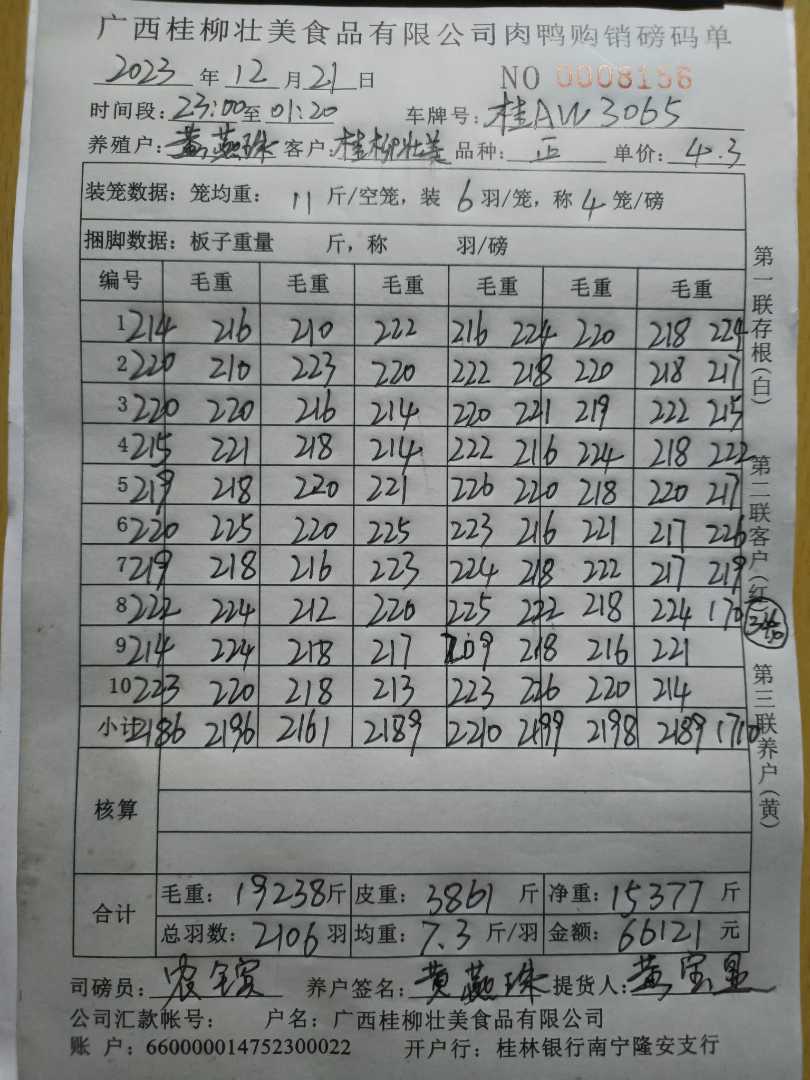 广西桂柳壮美食品有限公司肉鸭购销磅码单
2023 年 12 月 21 日 NO 0008156
时间段: 23:00 至 01:20 车牌号: 桂AW3065
养殖户: 黄燕珠 客户: 桂柳壮美 品种: 正 单价: 4.3
装笼数据: 笼均重: 11 斤/空笼, 装 6 羽/笼, 称 4 笼/磅
捆脚数据: 板子重量 斤, 称 羽/磅
编号 毛重 毛重 毛重 毛重 毛重 毛重
1 214 216 210 222 216 224 220 218 224
2 220 210 223 220 222 218 220 218 217
3 220 220 216 214 220 221 219 222 215
4 215 221 218 214 222 216 224 218 222
5 219 218 220 221 226 220 218 220 217
6 220 225 220 225 223 216 221 217 226
7 219 218 216 223 224 218 222 217 219
8 222 224 212 220 225 222 218 224 170
9 214 224 218 217 209 218 216 221
10 223 220 218 213 223 226 220 214
小计 2186 2196 2161 2189 2210 2199 2198 2189 1710
核算
合计 毛重: 19238 斤 皮重: 3861 斤 净重: 15377 斤
总羽数: 2106 羽 均重: 7.3 斤/羽 金额: 66121 元
司磅员: 养户签名: 黄燕珠 提货人: 黄
公司汇款帐号: 户名: 广西桂柳壮美食品有限公司
账 户: 660000014752300022 开户行: 桂林银行南宁隆安支行
第一联存根(白)
第二联客户(红)
第三联养户(黄)